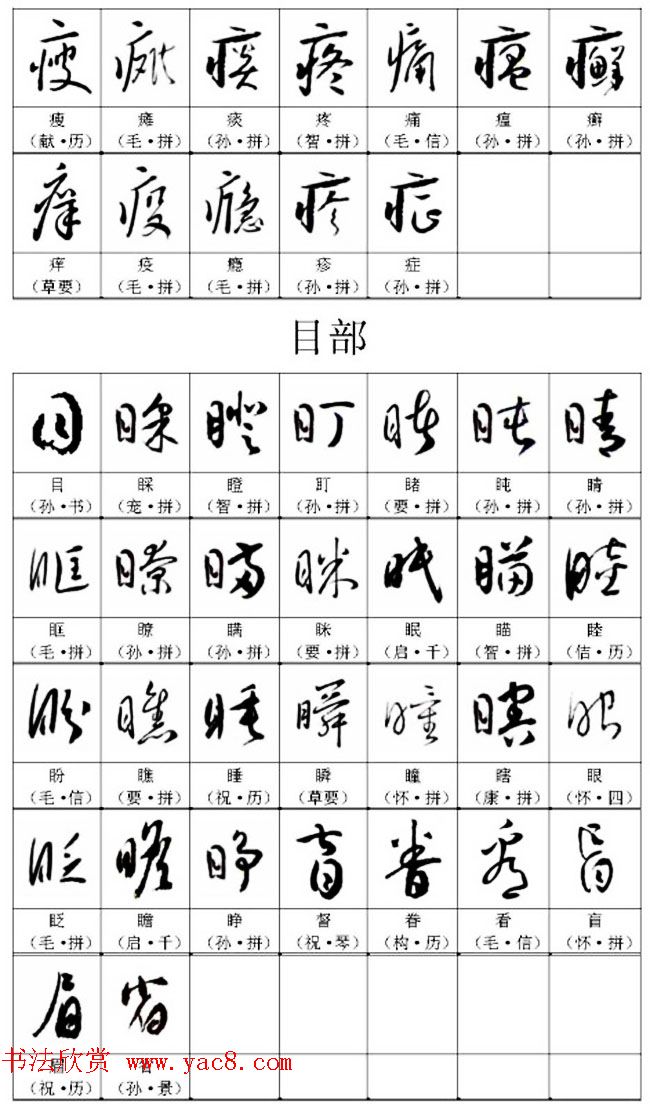 瘦 瘫 痰 疼 痛 瘟 癣
（献·历） （毛·拼） （孙·拼） （智·拼） （毛·信） （孙·拼） （孙·拼）
痒 疫 瘾 疹 症
（草要） （毛·拼） （毛·拼） （孙·拼） （孙·拼）
目部
目 睬 瞪 盯 睹 盹 睛
（孙·书） （宠·拼） （智·拼） （孙·拼） （要·拼） （孙·拼） （孙·拼）
眶 瞭 瞒 眯 眠 瞄 睦
（毛·拼） （孙·拼） （孙·拼） （要·拼） （启·千） （智·拼） （佶·历）
盼 瞧 睡 瞬 瞳 瞎 眼
（毛·信） （要·拼） （祝·历） （草要） （怀·拼） （康·拼） （怀·四）
眨 瞻 睁 督 眷 看 盲
（毛·拼） （启·千） （孙·拼） （祝·琴） （构·历） （毛·信） （怀·拼）
眉 省
书法欣赏 www.yac8.com
（祝·历） （孙·景）